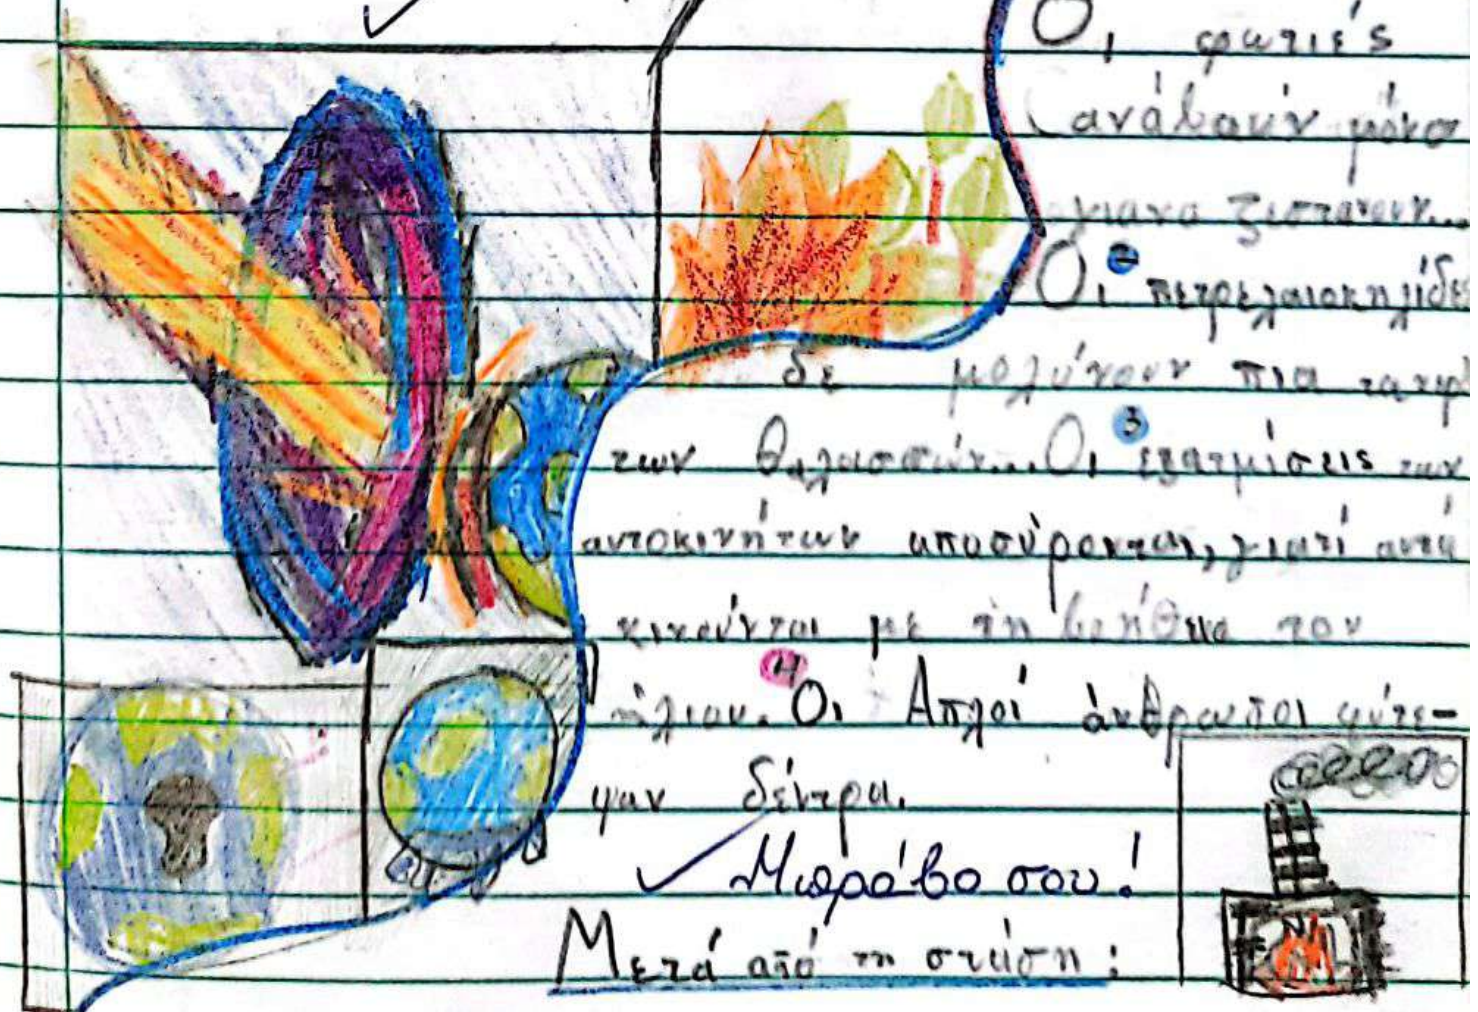 Οι φωτιές
ανάβουν μόνο
για να ζεσταίνουν...
Οι 2 πετρελαιοκηλίδε
δε μολύνουν πια τα
των θαλασσών... Οι 3 εξατμίσεις των
αυτοκινήτων αποσύρονται, γιατί αυτά
κινούνται με τη βοήθεια του
ήλιου. 4 Οι Απλοί άνθρωποι φύτε-
ψαν δέντρα.
Μπράβο σου!
Μετά από τη στάση: